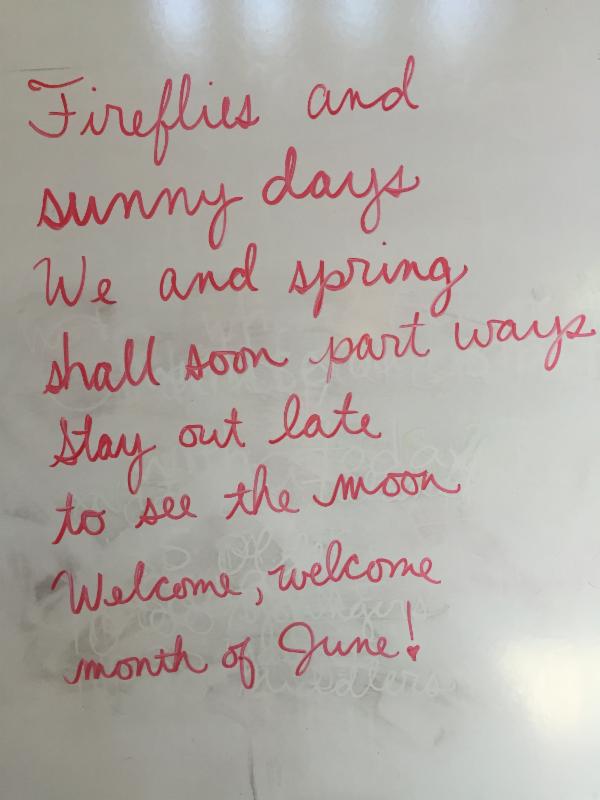 Fireflies and
sunny days
We and spring
shall soon part ways
Stay out late
to see the moon
Welcome, welcome
month of June!